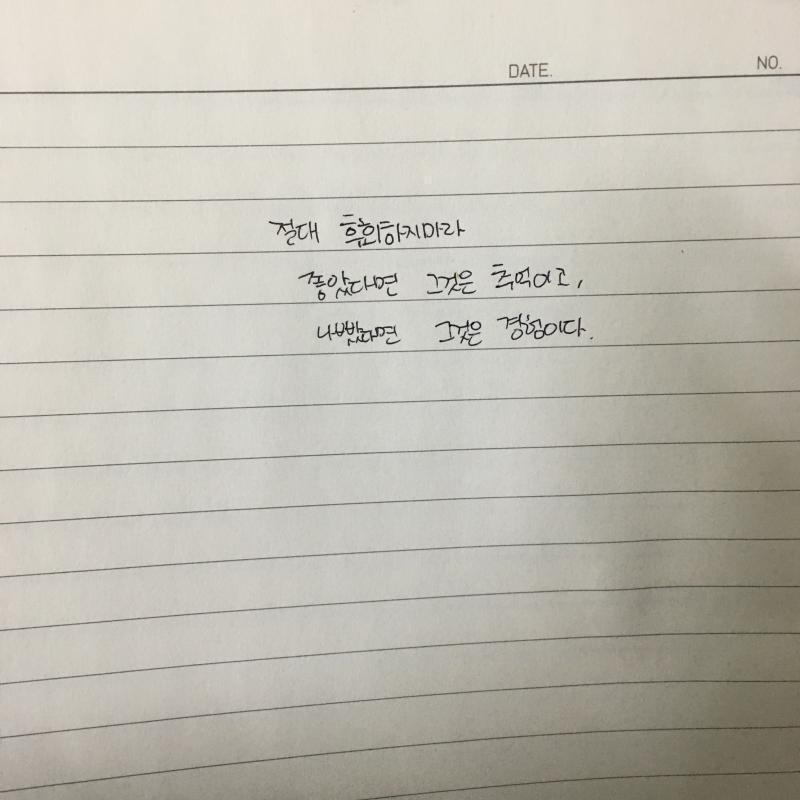 DATE. NO.
절대 후회하지마라
좋았다면 그것은 추억이고,
나빴다면 그것은 경험이다.